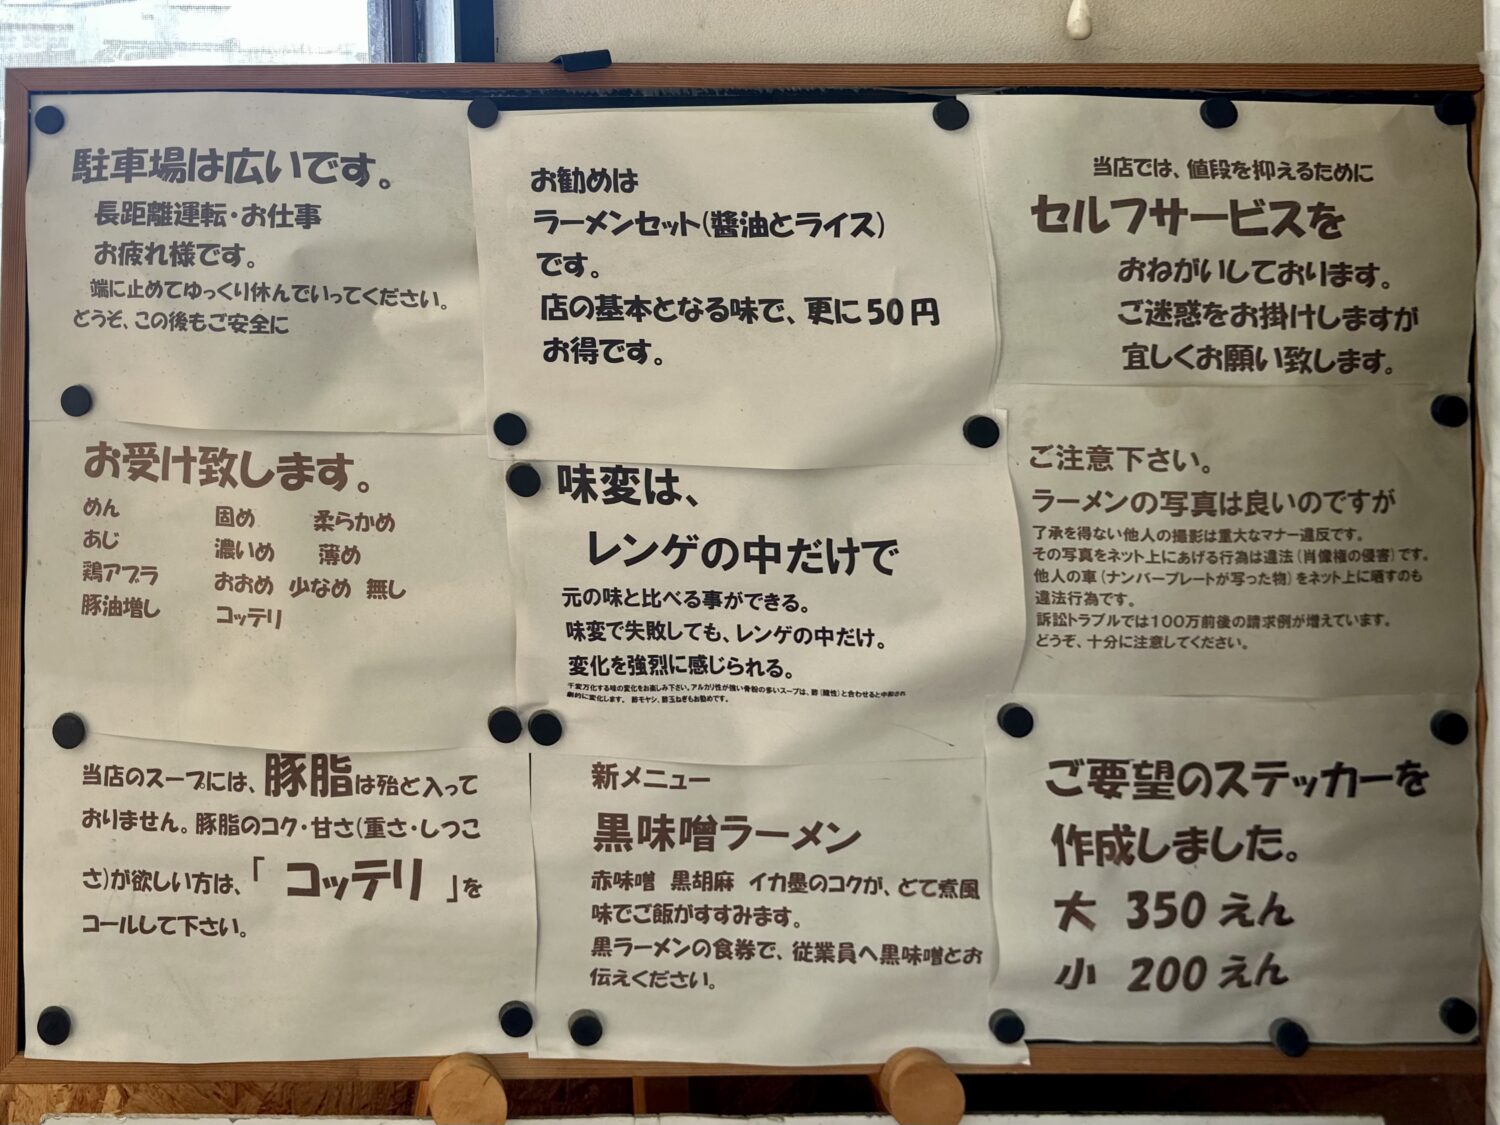 駐車場は広いです。
長距離運転・お仕事
お疲れ様です。
端に止めてゆっくり休んでいってください。
どうぞ、この後もご安全に
お勧めは
ラーメンセット(醬油とライス)
です。
店の基本となる味で、更に50円
お得です。
当店では、値段を抑えるために
セルフサービスを
おねがいしております。
ご迷惑をお掛けしますが
宜しくお願い致します。
お受け致します。
めん 固め 柔らかめ
あじ 濃いめ 薄め
鶏アブラ おおめ 少なめ 無し
豚油増し コッテリ
味変は、
レンゲの中だけで
元の味と比べる事ができる。
味変で失敗しても、レンゲの中だけ。
変化を強烈に感じられる。
千変万化する味の変化をお楽しみ下さい。アルカリ性が強い骨粉の多いスープは、酢(酸性)と合わせると中和され
劇的に変化します。 酢モヤシ、酢玉ねぎもお勧めです。
ご注意下さい。
ラーメンの写真は良いのですが
了承を得ない他人の撮影は重大なマナー違反です。
その写真をネット上にあげる行為は違法(肖像権の侵害)です。
他人の車(ナンバープレートが写った物)をネット上に晒すのも
違法行為です。
訴訟トラブルでは100万前後の請求例が増えています。
どうぞ、十分に注意してください。
当店のスープには、豚脂は殆ど入って
おりません。豚脂のコク・甘さ(重さ・しつこ
さ)が欲しい方は、「 コッテリ 」を
コールして下さい。
新メニュー
黒味噌ラーメン
赤味噌 黒胡麻 イカ墨のコクが、どて煮風
味でご飯がすすみます。
黒ラーメンの食券で、従業員へ黒味噌とお
伝えください。
ご要望のステッカーを
作成しました。
大 350えん
小 200えん